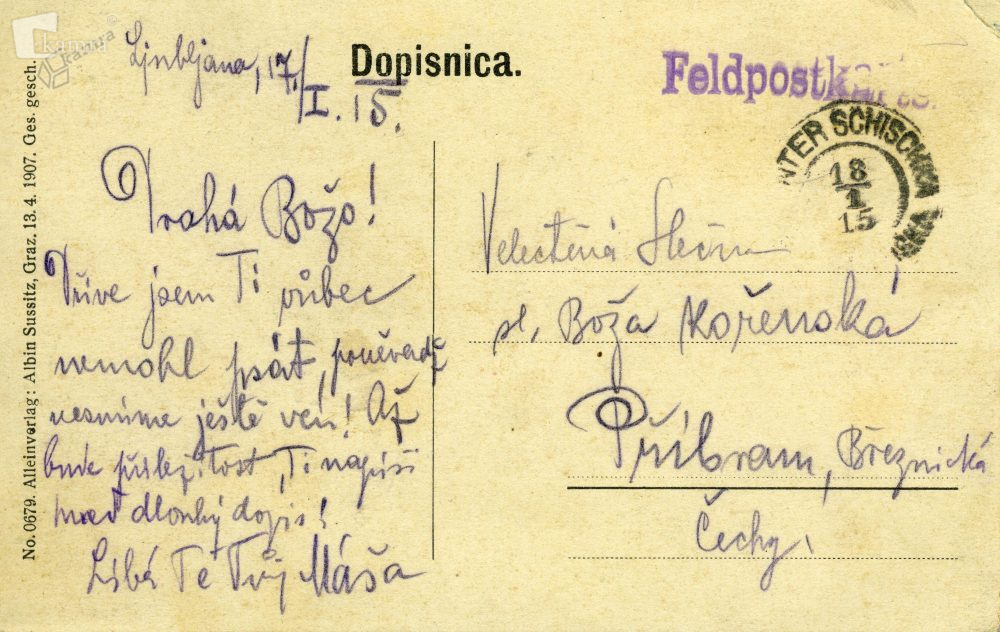 kamra
kamra
Ljubljana, 17./I. 15.
Dopisnica.
Feldpostkarte.
UNTER SCHISCHKA
18
I
15
Drahá Božo!
Dříve jsem Ti vůbec
nemohl psát, poněvadž
nesmíme ještě ven! Až
bude příležitost, Ti napíši
hned dlouhý dopis!
Líbá Tě Tvůj Máša
Velectěná Slečna
sl. Boža Kořenská
Příbram, Březnická
Čechy.
No. 0679. Alleinverlag: Albin Sussitz, Graz. 13. 4. 1907. Ges. gesch.